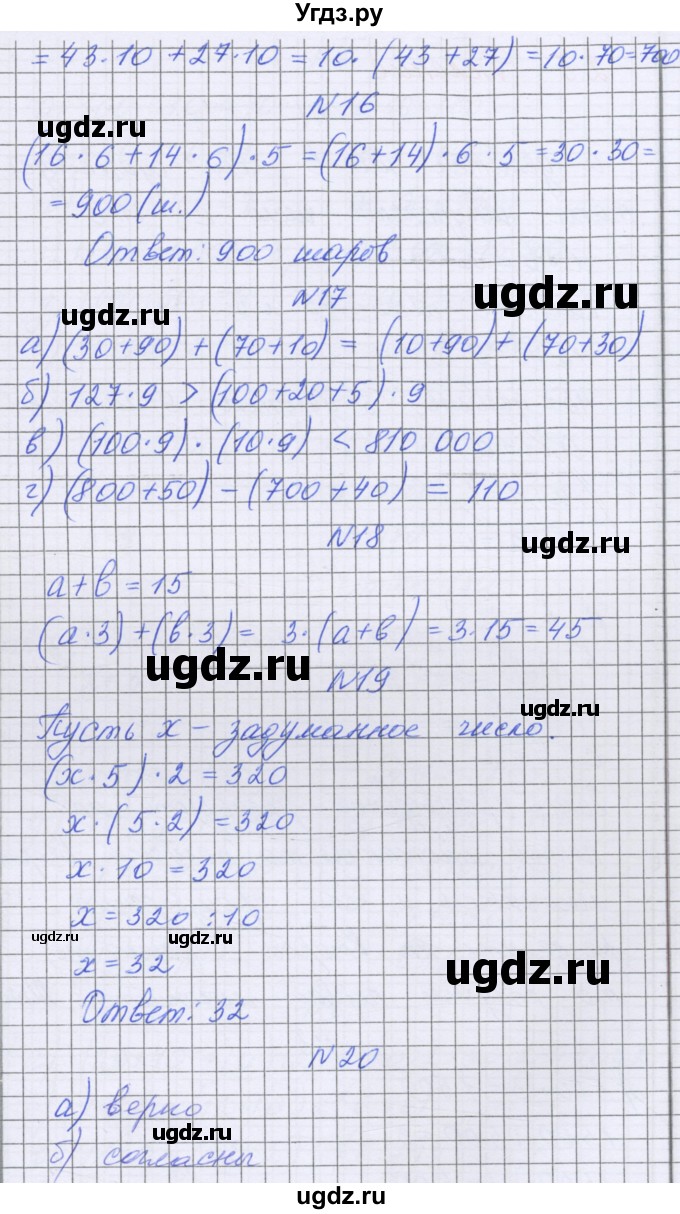 Угдз.ру
= 43·10 + 27·10 = 10·(43+27) = 10·70=700
N16
ugdz.ru
(16·6+14·6)·5 = (16+14)·6·5 = 30·30=
= 900 (ш.)
Ответ: 900 шаров
ugdz.ru
N17
ugdz.ru
а) (30+90)+(70+10) = (10+90)+(70+30)
б) 127·9 > (100+20+5)·9
в) (100·9)·(10·9) < 810 000
г) (800+50)-(700+40) = 110
N18
ugdz.ru
a+b=15
(a·3)+(b·3)= 3·(a+b)=3·15=45
ugdz.ru
N19
ugdz.ru
Пусть x - задуманное число.
(x·5)·2=320
x·(5·2)=320
x·10=320
x=320:10
ugdz.ru
ugdz.ru
x=32
ugdz.ru
Ответ: 32
N20
а) верно
ugdz.ru
б) согласны
ugdz.ru